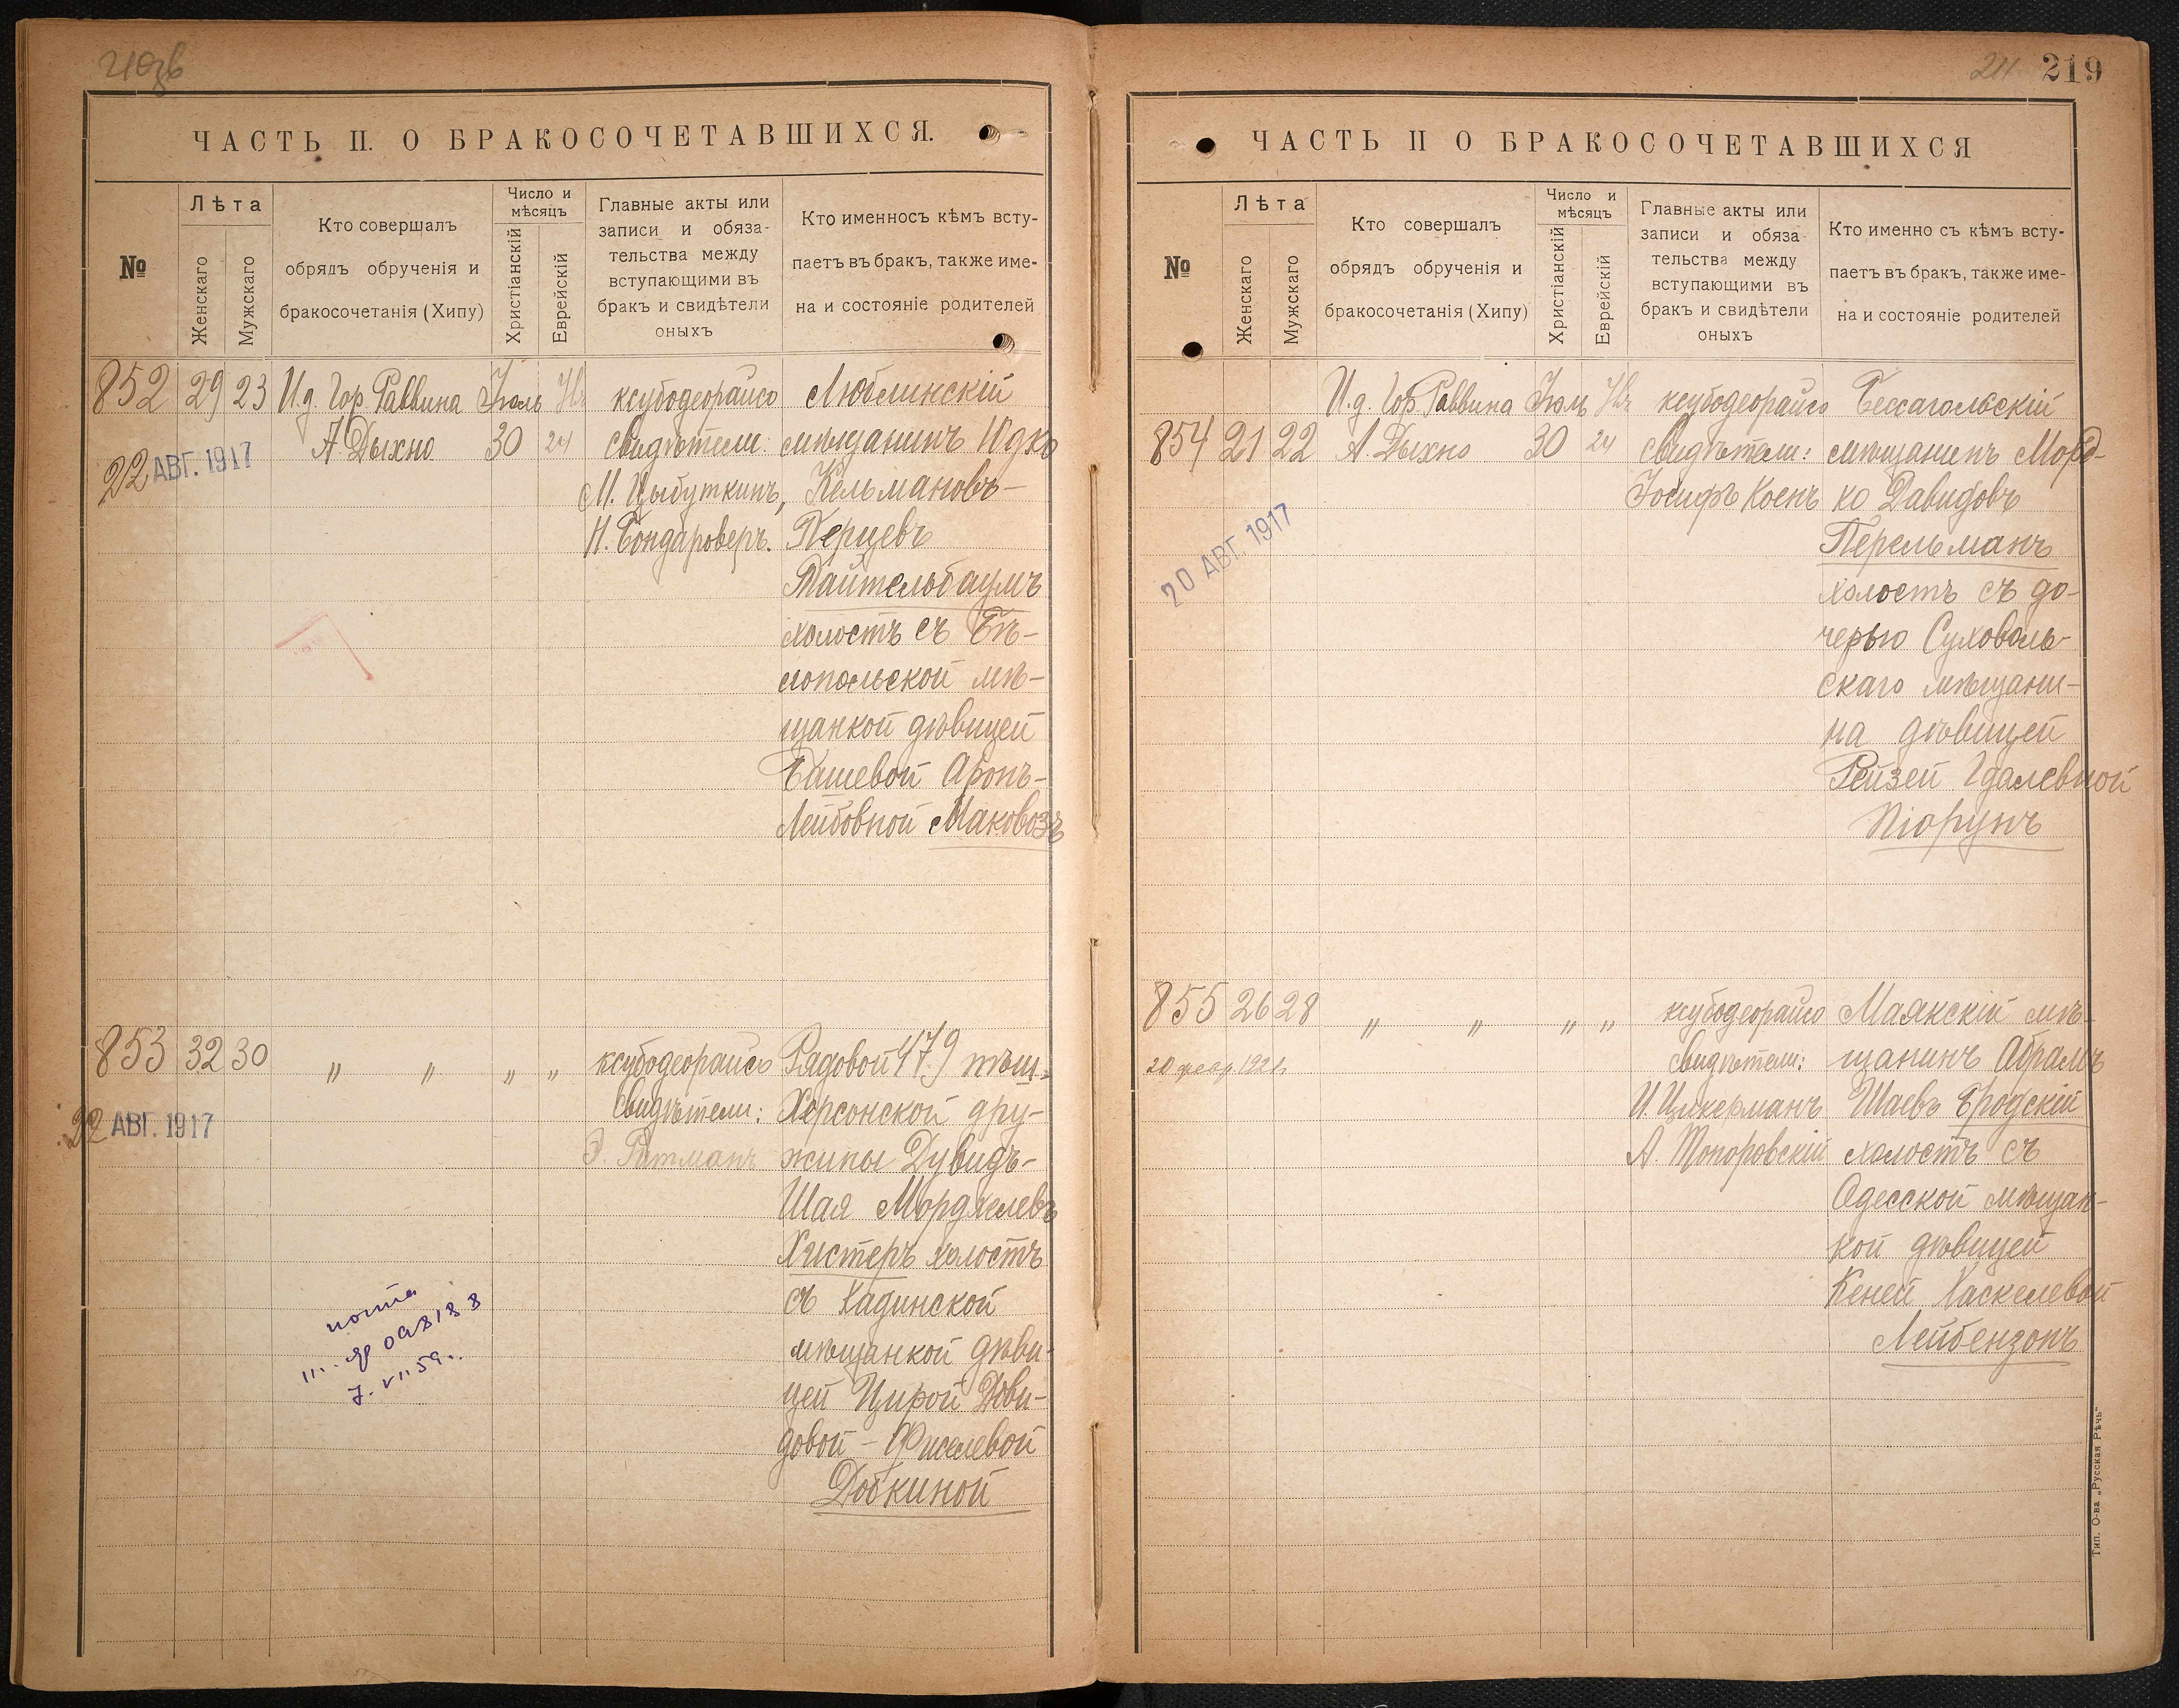 ЧАСТЬ II. О БРАКОСОЧЕТАВШИХСЯ.
№
Лѣта
Женскаго
Мужскаго
Кто совершалъ
обрядъ обрученія и
бракосочетанія (Хипу)
Число и
мѣсяцъ
Христіанскій
Еврейскій
Главные акты или
записи и обяза-
тельства между
вступающими въ
бракъ и свидѣтели
оныхъ
Кто именносъ кѣмъ всту-
паетъ въ бракъ, также име-
на и состояніе родителей
852 29 23 И.д. Гор. Раввина Іюль ксубодеорайсо Люблинскій
А. Дыхно 30 24 свидѣтели: мѣщанинъ Юдко
22 АВГ. 1917
М. Цыбуткинъ, Кельмановъ-
Н. Бондароверъ. Перцевъ
Тайтельбаумъ
холостъ съ Бѣ-
лопольской мѣ-
щанкой дѣвицей
Башевой Аронъ-
Лейбовной Маковозъ
853 32 30 " " " " ксубодеорайсо Рядовой 479 пѣш.
22 АВГ. 1917
свидѣтели: Херсонской дру-
Э. Ритманъ жины Дувидъ-
Шая Мордхелевъ
Хистеръ холостъ
съ Кадинской
мѣщанкой дѣви-
цей Цирой Дови-
довой-Фиселевой
Добкиной
7. VII 59.
211 219
ЧАСТЬ II О БРАКОСОЧЕТАВШИХСЯ
№
Лѣта
Женскаго
Мужскаго
Кто совершалъ
обрядъ обрученія и
бракосочетанія (Хипу)
Число и
мѣсяцъ
Христіанскій
Еврейскій
Главные акты или
записи и обяза-
тельства между
вступающими въ
бракъ и свидѣтели
оныхъ
Кто именно съ кѣмъ всту-
паетъ въ бракъ, также име-
на и состояніе родителей
И.д. Гор. Раввина Іюль ксубодеорайсо
854 21 22 А. Дыхно 30 24 свидѣтели: мѣщанинъ Морд-
Іосифъ Коенъ ко Давидовъ
20 АВГ. 1917
Перельманъ
холостъ съ до-
черью Суховоль-
скаго мѣщани-
на дѣвицей
Рейзей Гдалевной
Піорунъ
855 26 28 " " " " ксубодеорайсо Маякскій мѣ-
свидѣтели: щанинъ Абрамъ
И. Цукерманъ Шаевъ Бродскій
А. Топоровскій холостъ съ
Одесской мѣщан-
кой дѣвицей
Кеней Хаскелевой
Лейбензонъ
Тип. О-ва „Русская Рѣчь"